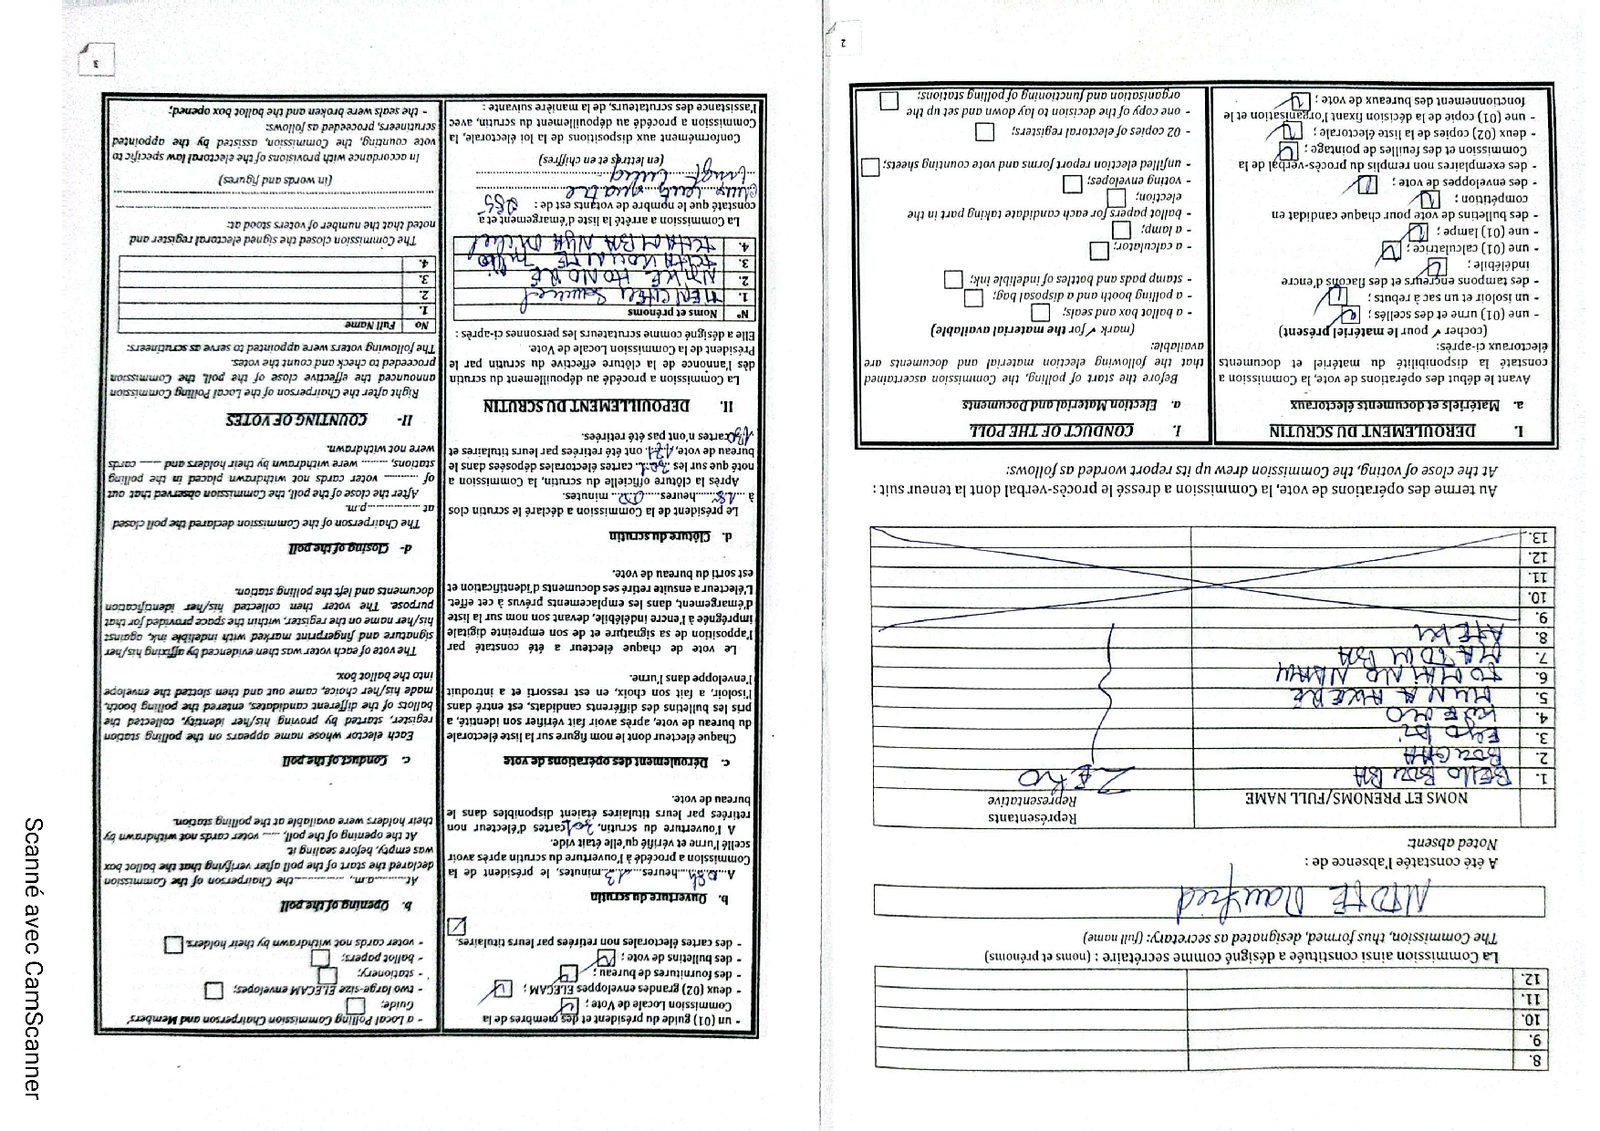 8.
9.
10.
11.
12.
La Commission ainsi constituée a désigné comme secrétaire : (noms et prénoms)
The Commission, thus formed, designated as secretary: (full name)
A été constatée l'absence de :
Noted absent:
NOMS ET PRENOMS/FULL NAME
Représentants
Representative
1. BELLO BOUBA
2.
3.
4.
5. MUNA AKERE
6.
7. MATOMBA
8. ATEKI
9.
10.
11.
12.
13.
Au terme des opérations de vote, la Commission a dressé le procès-verbal dont la teneur suit :
At the close of voting, the Commission drew up its report worded as follows:
I. DEROULEMENT DU SCRUTIN
a. Matériels et documents électoraux
Avant le début des opérations de vote, la Commission a
constaté la disponibilité du matériel et documents
électoraux ci-après:
(cocher ✓ pour le matériel présent)
- une (01) urne et des scellés ;
- un isoloir et un sac à rebuts ;
- des tampons encreurs et des flacons d'encre
indélébile ;
- une (01) calculatrice ;
- une (01) lampe ;
- des bulletins de vote pour chaque candidat en
compétition ;
- des enveloppes de vote ;
- des exemplaires non remplis du procès-verbal de la
Commission et des feuilles de pointage ;
- deux (02) copies de la liste électorale ;
- une (01) copie de la décision fixant l'organisation et le
fonctionnement des bureaux de vote ;
I. CONDUCT OF THE POLL
a. Election Material and Documents
Before the start of polling, the Commission ascertained
that the following election material and documents are
available:
(mark ✓ for the material available)
- a ballot box and seals;
- a polling booth and a disposal bag;
- stamp pads and bottles of indelible ink;
- a calculator;
- a lamp;
- ballot papers for each candidate taking part in the
election;
- voting envelopes;
- unfilled election report forms and vote counting sheets;
- 02 copies of electoral registers;
- one copy of the decision to lay down and set up the
organisation and functioning of polling stations;
2
- un (01) guide du président et des membres de la
Commission Locale de Vote ;
- deux (02) grandes enveloppes ELECAM ;
- des fournitures de bureau ;
- des bulletins de vote ;
- des cartes électorales non retirées par leurs titulaires.
b. Ouverture du scrutin
A 08h heures 13 minutes, le président de la
Commission a procédé à l'ouverture du scrutin après avoir
scellé l'urne et vérifié qu'elle était vide.
A l'ouverture du scrutin, 301 cartes d'électeur non
retirées par leurs titulaires étaient disponibles dans le
bureau de vote.
c. Déroulement des opérations de vote
Chaque électeur dont le nom figure sur la liste électorale
du bureau de vote, après avoir fait vérifier son identité, a
pris les bulletins des différents candidats, est entré dans
l'isoloir, a fait son choix, en est ressorti et a introduit
l'enveloppe dans l'urne.
Le vote de chaque électeur a été constaté par
l'apposition de sa signature et de son empreinte digitale
imprégnée à l'encre indélébile, devant son nom sur la liste
d'émargement, dans les emplacements prévus à cet effet.
L'électeur a ensuite retiré ses documents d'identification et
est sorti du bureau de vote.
d. Clôture du scrutin
Le président de la Commission a déclaré le scrutin clos
à 18 heures 00 minutes.
Après la clôture officielle du scrutin, la Commission a
noté que sur les 301 cartes électorales déposées dans le
bureau de vote, 171 ont été retirées par leurs titulaires et
130 cartes n'ont pas été retirées.
II. DEPOUILLEMENT DU SCRUTIN
La Commission a procédé au dépouillement du scrutin
dès l'annonce de la clôture effective du scrutin par le
Président de la Commission Locale de Vote.
Elle a désigné comme scrutateurs les personnes ci-après :
N° Noms et prénoms
1.
2. HONORÉ
3.
4. TCHAMBA NGA Michel
La Commission a arrêté la liste d'émargement et a
constaté que le nombre de votants est de : 285
(en lettres et en chiffres)
Conformément aux dispositions de la loi électorale, la
Commission a procédé au dépouillement du scrutin, avec
l'assistance des scrutateurs, de la manière suivante :
- a Local Polling Commission Chairperson and Members'
Guide;
- two large-size ELECAM envelopes;
- stationery;
- ballot papers;
- voter cards not withdrawn by their holders.
b. Opening of the poll
At..........a.m., ............the Chairperson of the Commission
declared the start of the poll after verifying that the ballot box
was empty, before sealing it.
At the opening of the poll, ..... voter cards not withdrawn by
their holders were available at the polling station.
c. Conduct of the poll
Each elector whose name appears on the polling station
register, started by proving his/her identity, collected the
ballots of the different candidates, entered the polling booth,
made his/her choice, came out and then slotted the envelope
into the ballot box.
The vote of each voter was then evidenced by affixing his/her
signature and fingerprint marked with indelible ink, against
his/her name on the register, within the space provided for that
purpose. The voter then collected his/her identification
documents and left the polling station.
d- Closing of the poll
The Chairperson of the Commission declared the poll closed
at ...................p.m.
After the close of the poll, the Commission observed that out
of .......... voter cards not withdrawn placed in the polling
stations, ........ were withdrawn by their holders and ...... cards
were not withdrawn.
II- COUNTING OF VOTES
Right after the Chairperson of the Local Polling Commission
announced the effective close of the poll, the Commission
proceeded to check and count the votes.
The following voters were appointed to serve as scrutineers:
No Full Name
1.
2.
3.
4.
The Commission closed the signed electoral register and
noted that the number of voters stood at:
(in words and figures)
In accordance with provisions of the electoral law specific to
vote counting, the Commission, assisted by the appointed
scrutineers, proceeded as follows:
- the seals were broken and the ballot box opened;
3
Scanné avec CamScanner